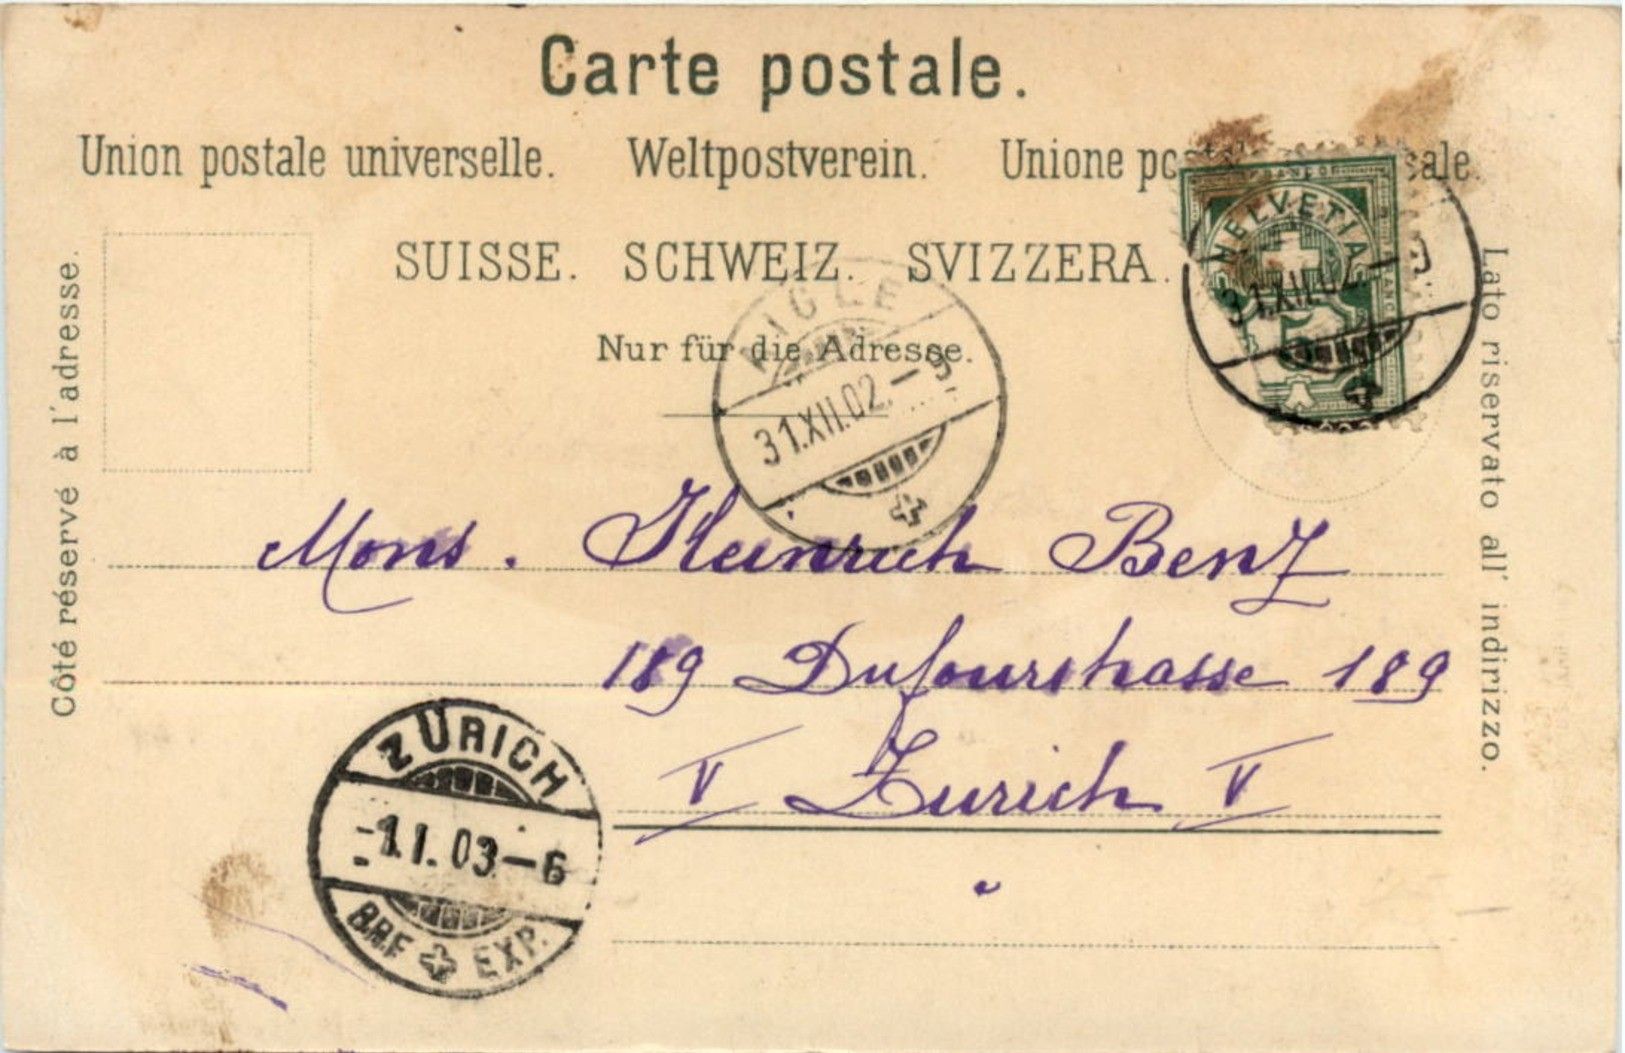 Carte postale.
Union postale universelle. Weltpostverein. Unione postale
SUISSE. SCHWEIZ. SVIZZERA.
Nur für die Adresse.
Côté réservé à l'adresse.
Lato riservato all' indirizzo.
HELVETIA
31.XII.02.—9
AIGLE
31.XII.02.—9
Mons. Heinrich Benz
189 Dufourstrasse 189
V Zurich V
ZÜRICH
-1.I.03—6
BRF. EXP.